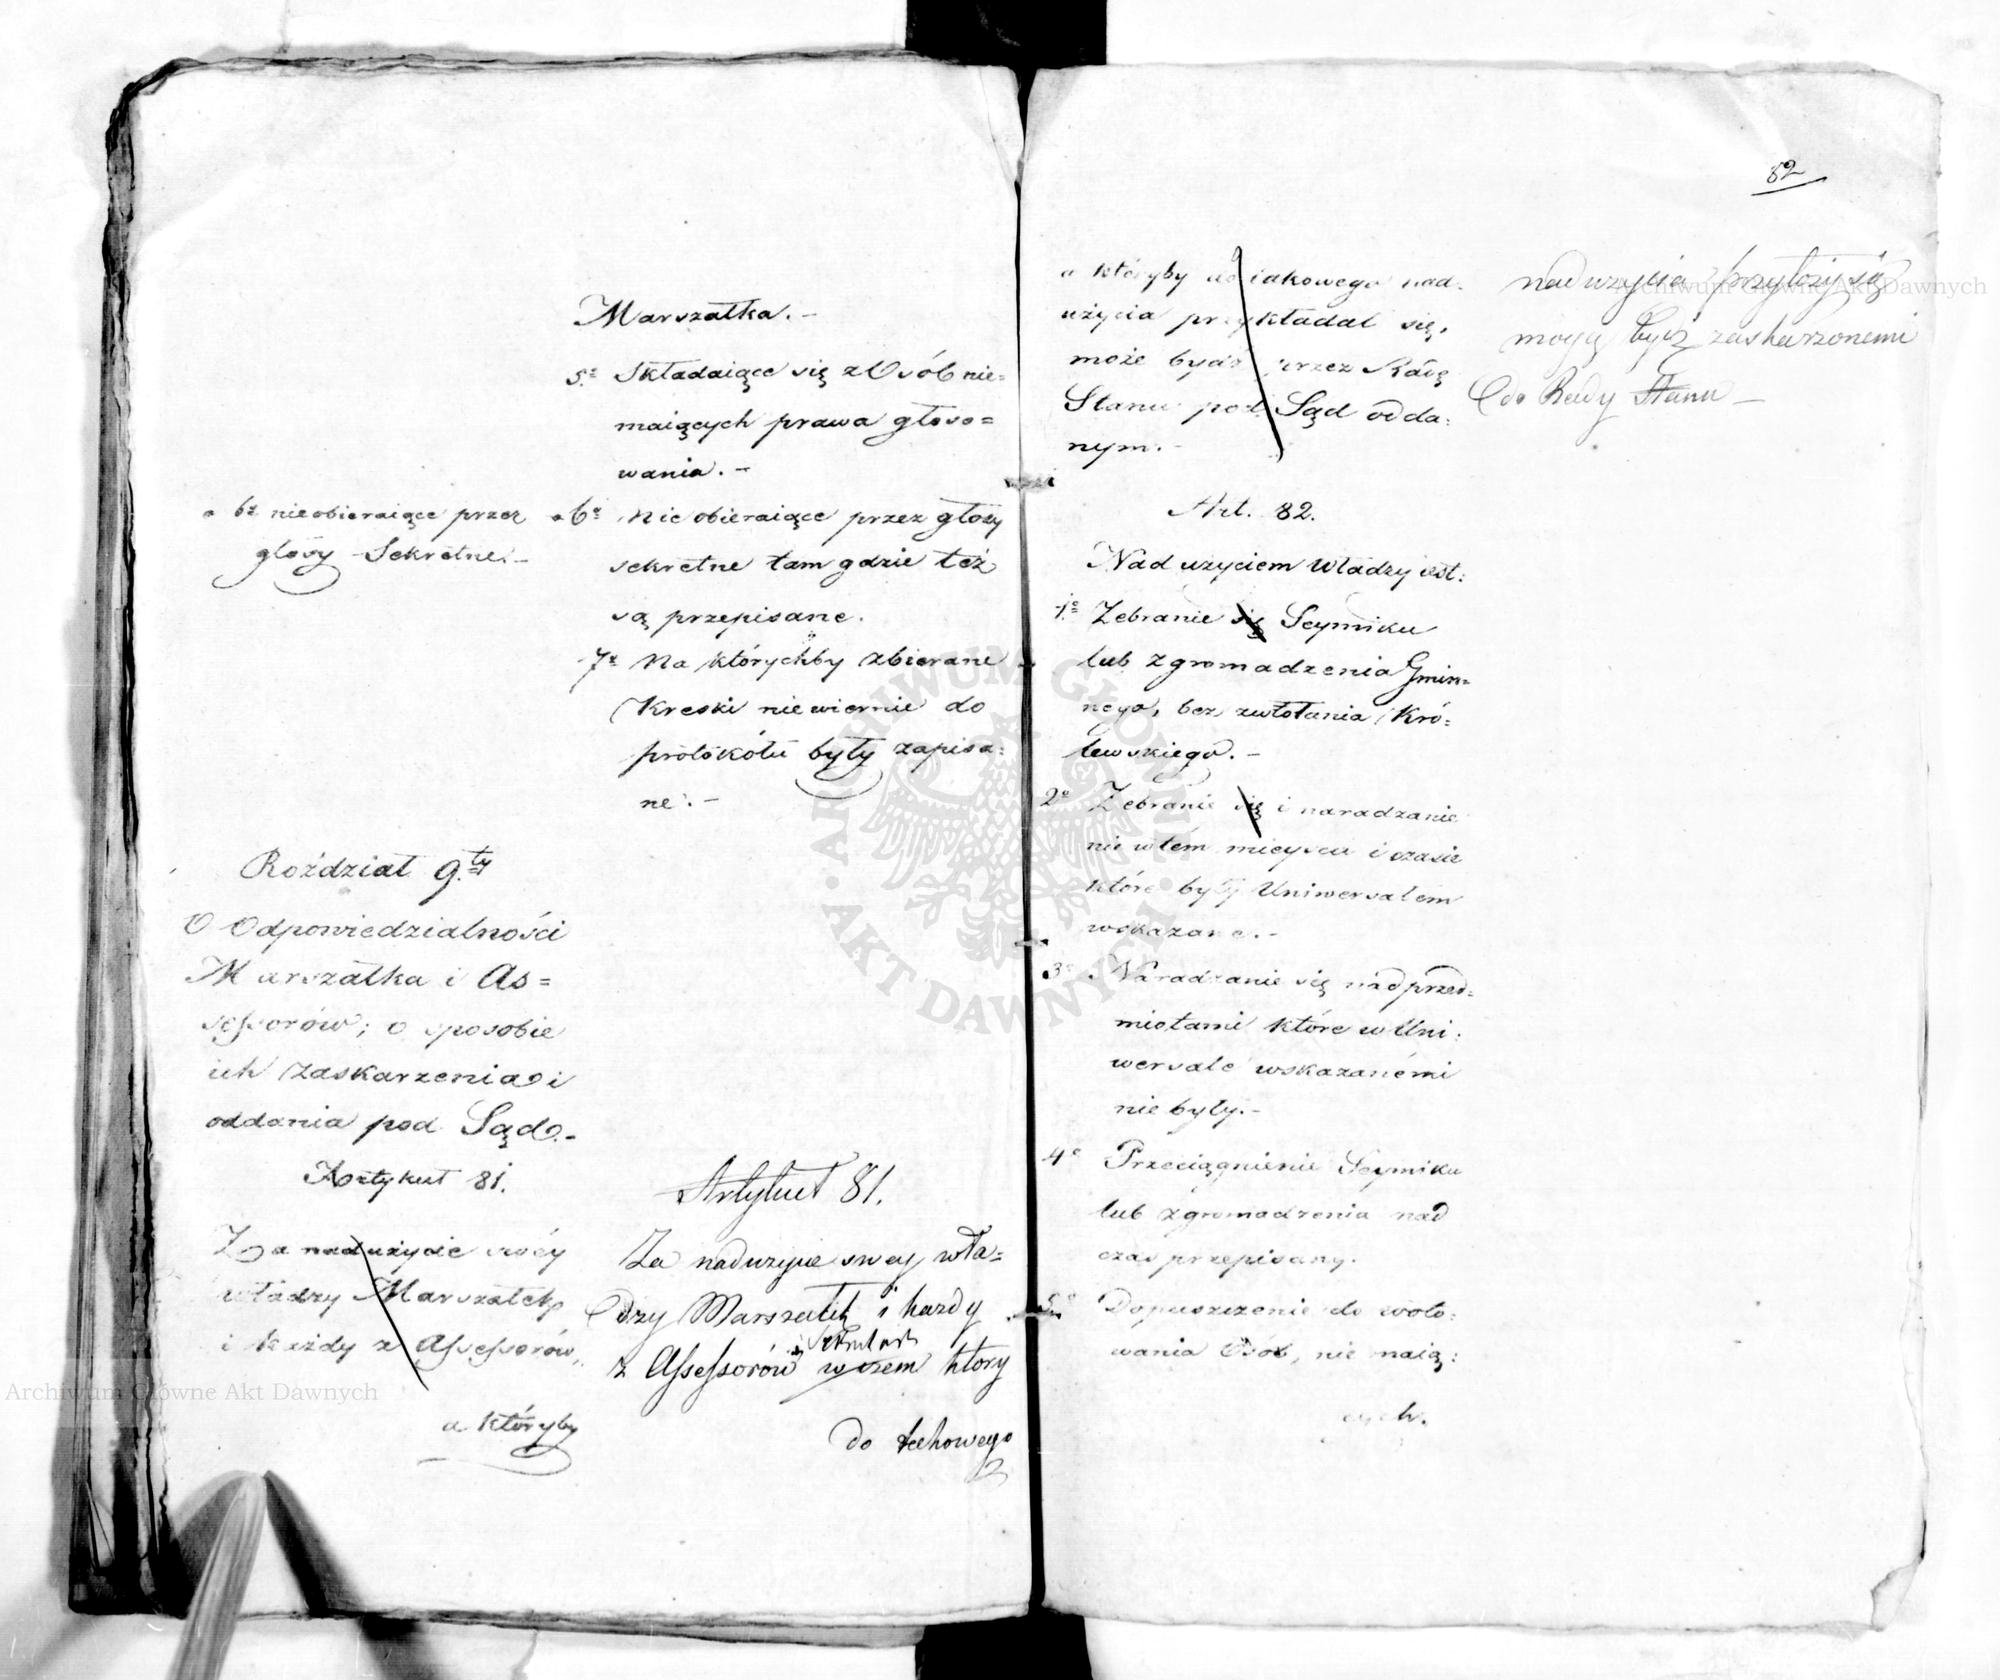 Marszałka. –
5º Składaiące się z Osób nie=
maiących prawa głoso=
wania. –
6º nieobieraiące przez
głosy Sekretne. –
6º Nieobieraiące przez głosy
sekretne tam gdzie też
są przepisane.
7º Na którychby zbierane
Kreski niewiernie do
protokółu były zapisa=
ne. –
Rozdział 9.ty
O Odpowiedzialności
Marszałka i As=
sessorów; o sposobie
ich zaskarzenia i
oddania pod Sąd. –
Artykuł 81.
Za nadużycie swéy
władzy Marszałek
i każdy z Assessorów,
a któryby
Artykuł 81.
Za naduzycie swey wła=
dzy Marszałek i kazdy
z Assessorów wrzem ktory
do
82
a któryby do iakowego nad=
użycia przykładał się,
może bydź przez Radę
Stanu pod Sąd odda=
nym. –
nadużycia przyłożył się
mogą bydź zaskarzonemi
do Rady Stanu –
Art. 82.
Nadużyciem władzy iest:
1º Zebranie się Seymiku
lub zgromadzenia Gmin=
nego, bez zwołania Kró=
lewskiego. –
2º Zebranie się i naradzanie
nie w tém mieyscu i czasie
które były Uniwersałem
wskazane. –
3º Naradzanie się nad przed=
miotami które w Uni=
wersale wskazanémi
nie były. –
4º Przeciągnienie Seymiku
lub zgromadzenia nad
czas przepisany.
5º Dopuszczenie do woto=
wania Osób, nie maią=
cych.
Archiwum Główne Akt Dawnych
Archiwum Główne Akt Dawnych
ARCHIWUM GŁÓWNE AKT DAWNYCH